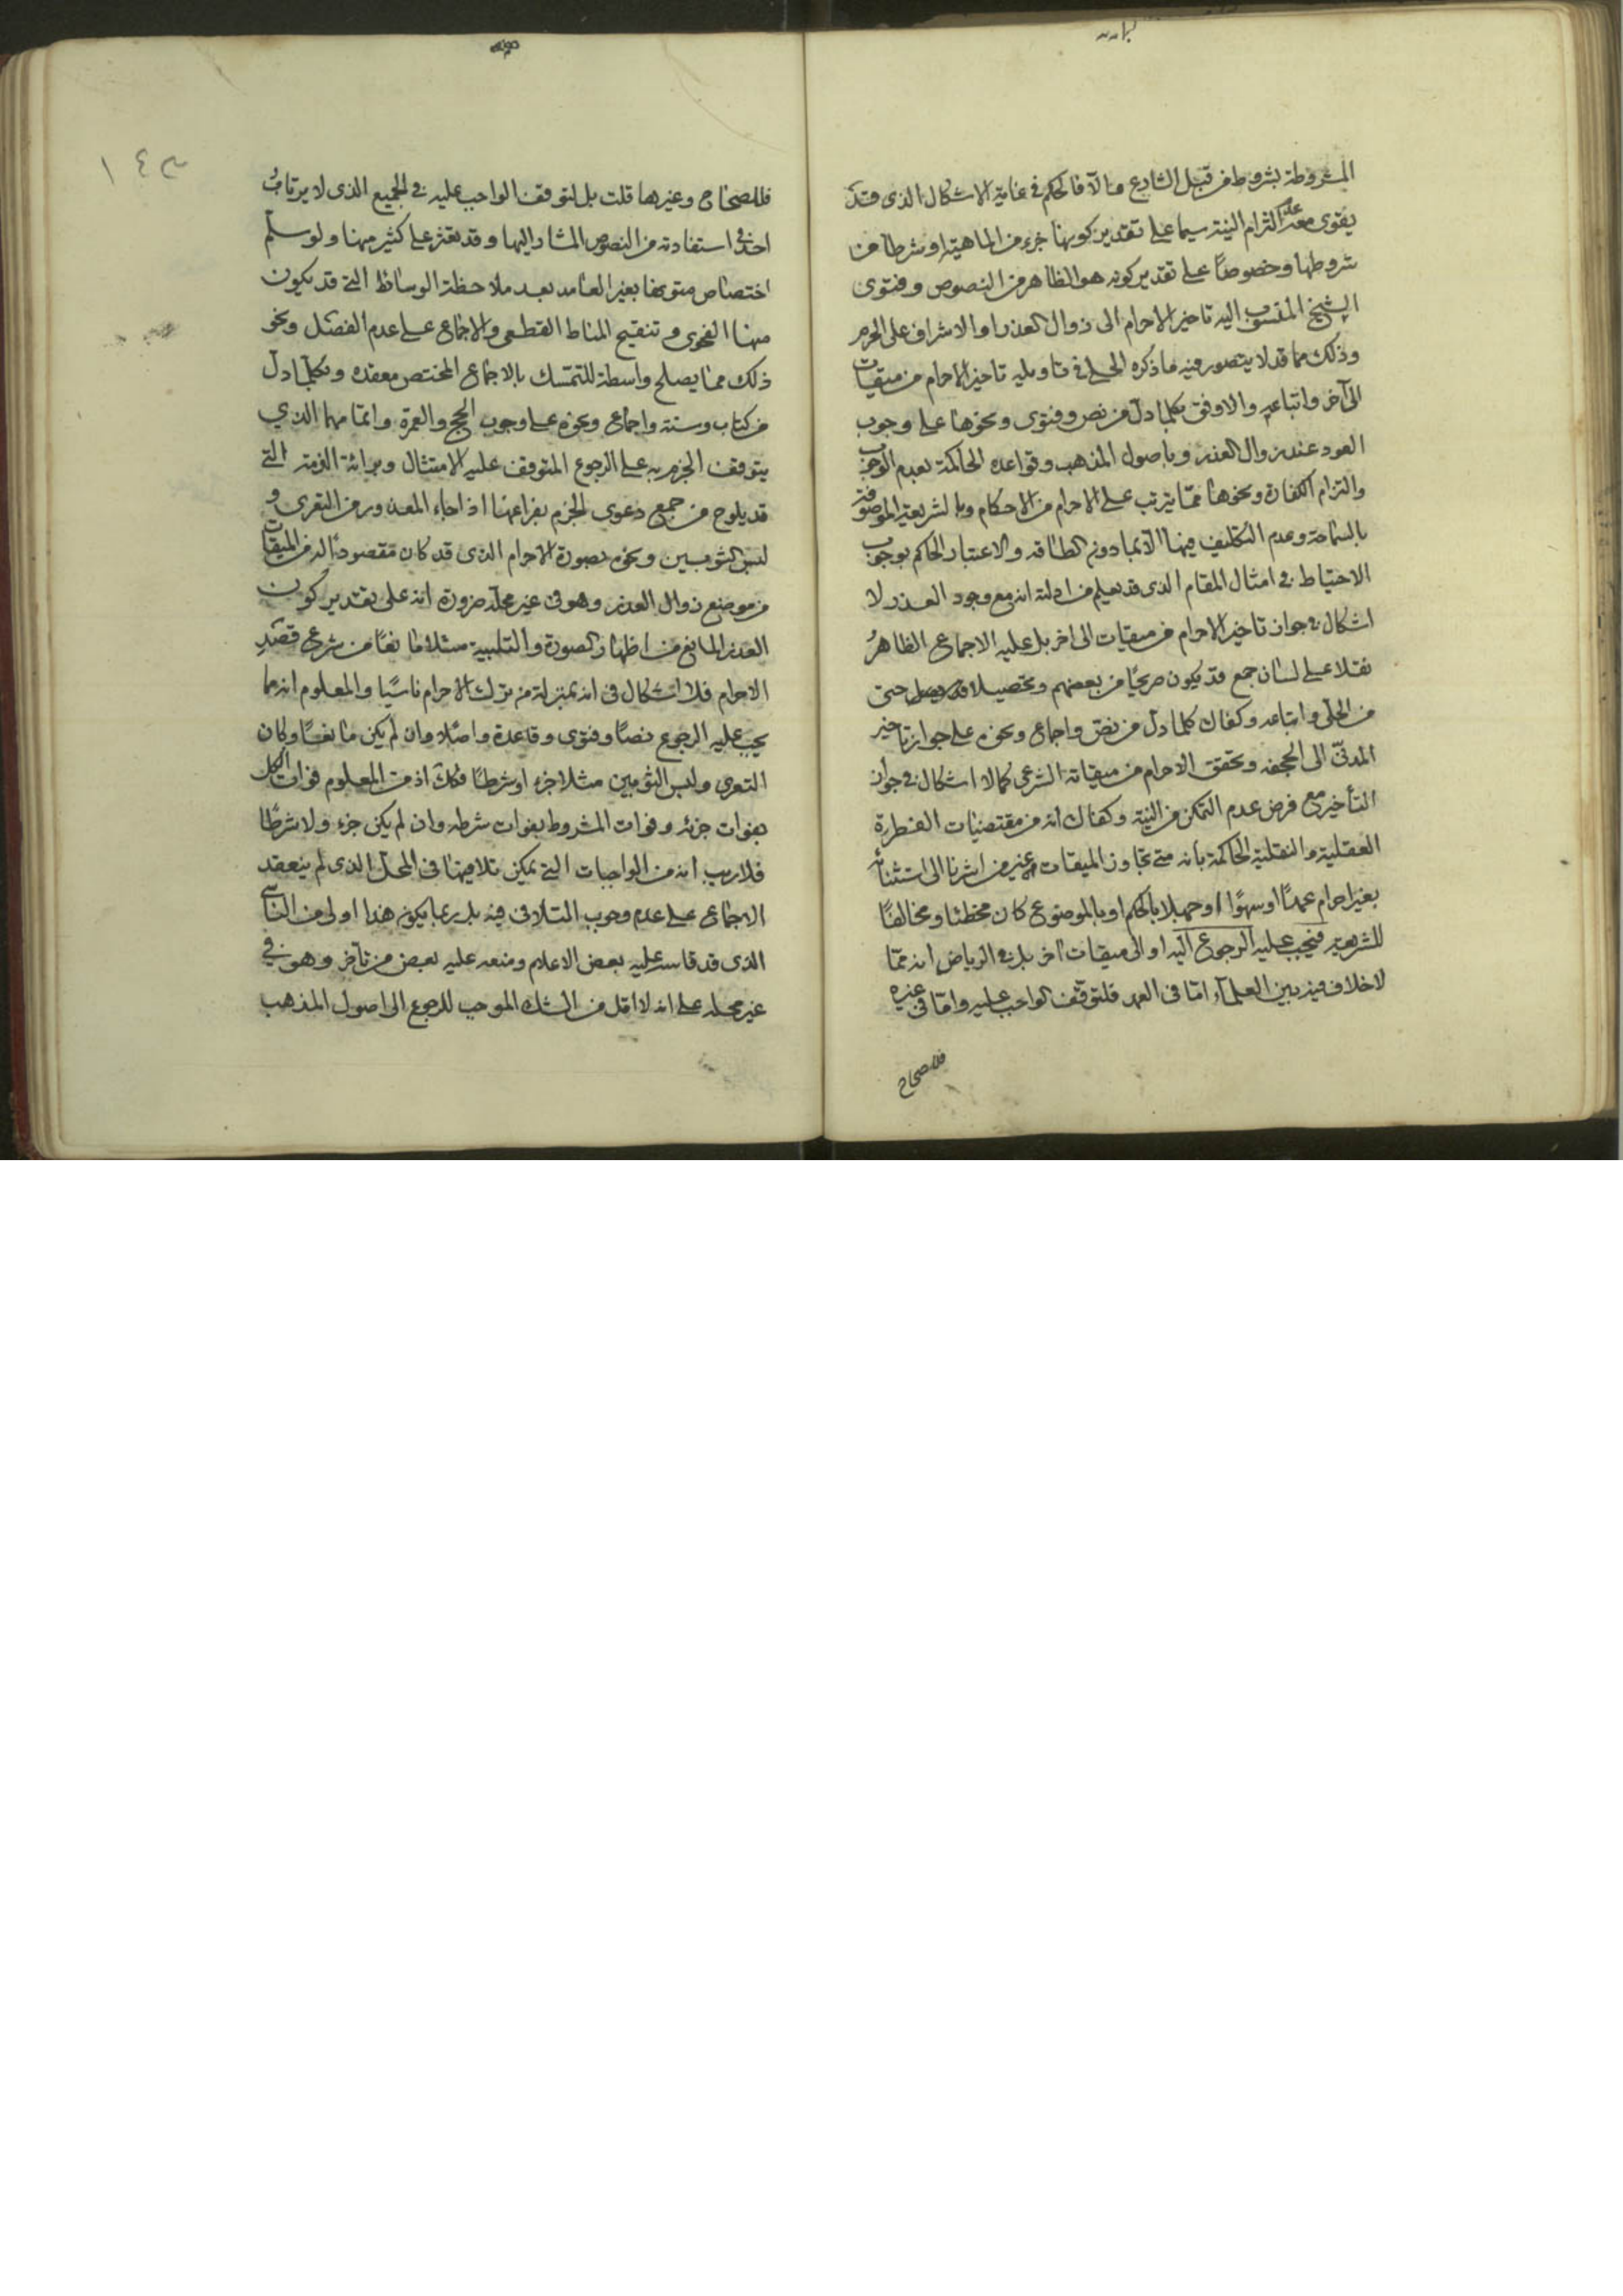 المشروطة بشروط من قبل الشارع والا فالحكم في غاية الاشكال الذى قد
يقوى معه عدم التزام النية سيما على تقدير كونها جزء من الماهية او شرطا من
شروطها وخصوصًا على تقدير كونه هو الظاهر من النصوص وفتوى
الشيخ المنسوب اليه تاخير الاحرام الى زوال العذر او الاشراف على الحرم
وذلك مما قد لا يتصور فيه ما ذكره الحلى في تاويله تاخير الاحرام من ميقات
الى آخر واتباعه والاوفق بكلما دل من نص وفتوى ونحوها على وجوب
العود عند زوال العذر وباصول المذهب وقواعده الحاكمة بعدم الوجوب
والتزام الكفارة ونحوها ممّا يترتب على الاحرام من الاحكام وبالشريعة الموصوفة
بالسماحة وعدم التكليف فيها الا بما دون الطاقه والاعتبار الحاكم بوجوب
الاحتياط في امثال المقام الذى قد يعلم من ادلته انه مع وجود العذر لا
اشكال في جواز تاخير الاحرام من ميقات الى اخر بل عليه الاجماع الظاهرُ
نقلا على لسان جمع قد يكون صريحًا من بعضهم وتحصيلا حتى
من الحلّى واتباعه وكفاك كلما دل من نص واجماع ونحوه على جواز تاخير
المدنىّ الى الجحفه وتحقق الاحرام من ميقاته الشرعى كما لا اشكال في جواز
التأخير مع فرض عدم التمكن من النية وكفاك انه من مقتضيات الفطرة
العقلية والنقلية الحاكمة بانه متى تجاوز الميقات غير من اشرنا الى استثنائه
بغير احرام عمدًا او سهوًا او جهلا بالحكم او بالموضوع كان مخطئا ومخالفًا
للشريعه فيجب عليه الرجوع اليه او الى ميقات اخر بل في الرياض انه ممّا
لا خلاف فيه بين العلمآء امّا في العمد فلتوقّف الواجب عليه وامّا في غيره
فللصحاح
فللصحاح وغيرها قلت بل لتوقف الواجب عليه في الجميع الذى لا يرتابُ
احد في استفادته من النصوص المشار اليها وقد تعثر على كثير منها ولو سلّم
اختصاص متونها بغير العامد بعد ملاحظة الوسائط التى قد يكون
منها الفحوى وتنقيح المناط القطعى والاجماع على عدم الفصل ونحو
ذلك مما يصلح واسطة للتمسّك بالاجماع المختص معقده وبكلّما دل
من كتاب وسنة واجماع ونحوه على وجوب الحج والعمرة واتمامهما الذي
يتوقف الجزم به على الرجوع المتوقف عليه الامتثال وبرائة الذمة التى
قد يلوح من جمع دعوى الجزم بفراغها اذا جاء المعذور من التعرى و
لبس الثوبين ونحوه بصورة الاحرام الذى قد كان مقصودًا له من الميقات
من موضع زوال العذر وهو في غير محله ضرورة انه على تقدير كون
العذر المانع من اظهار الصورة والتلبية مثلا مانعًا من شرعى قصدِ
الاحرام فلا اشكال في انه بمنزلة من ترك الاحرام ناسيًا والمعلوم انه مما
يجب عليه الرجوع نصًا وفتوى وقاعدة واصلا وان لم يكن مانعًا وكان
التعرى ولبس الثوبين مثلا جزء او شرطًا فكذلك اذ من المعلوم فوات الكل
بفوات جزئه وفوات المشروط بفوات شرطه وان لم يكن جزء ولا شرطًا
فلا ريب انه من الواجبات التى يمكن تلافيها في المحل الذى لم ينعقد
الاجماع على عدم وجوب التلافى فيه بل ربما يكون هذا اولى من الناسى
الذى قد قاسه عليه بعض الاعلام ومنعه عليه بعض من تأخر وهو في
غير محله على انه لا اقل من الشك الموجب للرجوع الى اصول المذهب